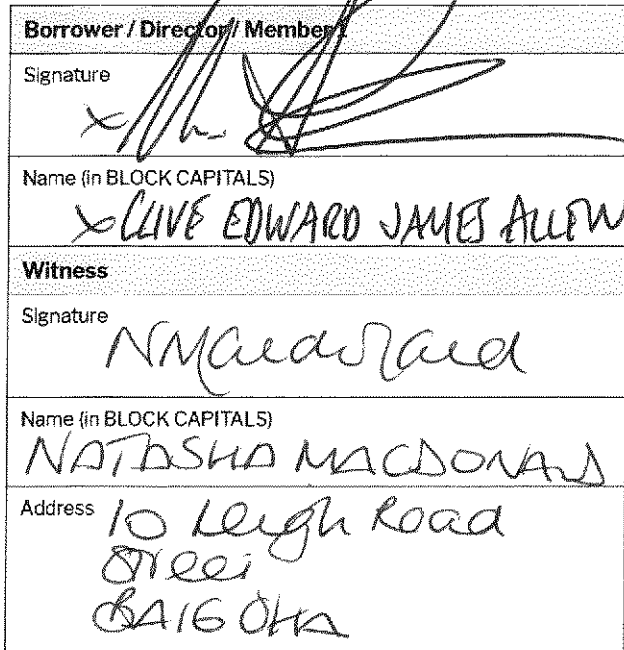 Borrower / Director / Member 1
Signature
x
Name (in BLOCK CAPITALS)
x CLIVE EDWARD JAMES ALLEN
Witness
Signature
NMacdonald
Name (in BLOCK CAPITALS)
NATASHA MACDONALD
Address 10 Leigh Road
Street
BA16 0HA